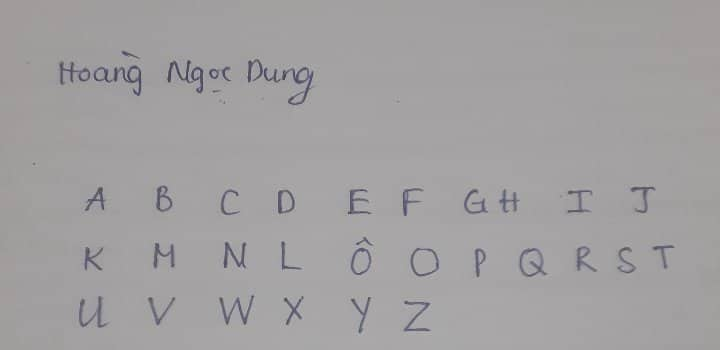 Hoàng Ngọc Dung
A B C D E F G H I J
K M N L Ô O P Q R S T
U V W X Y Z